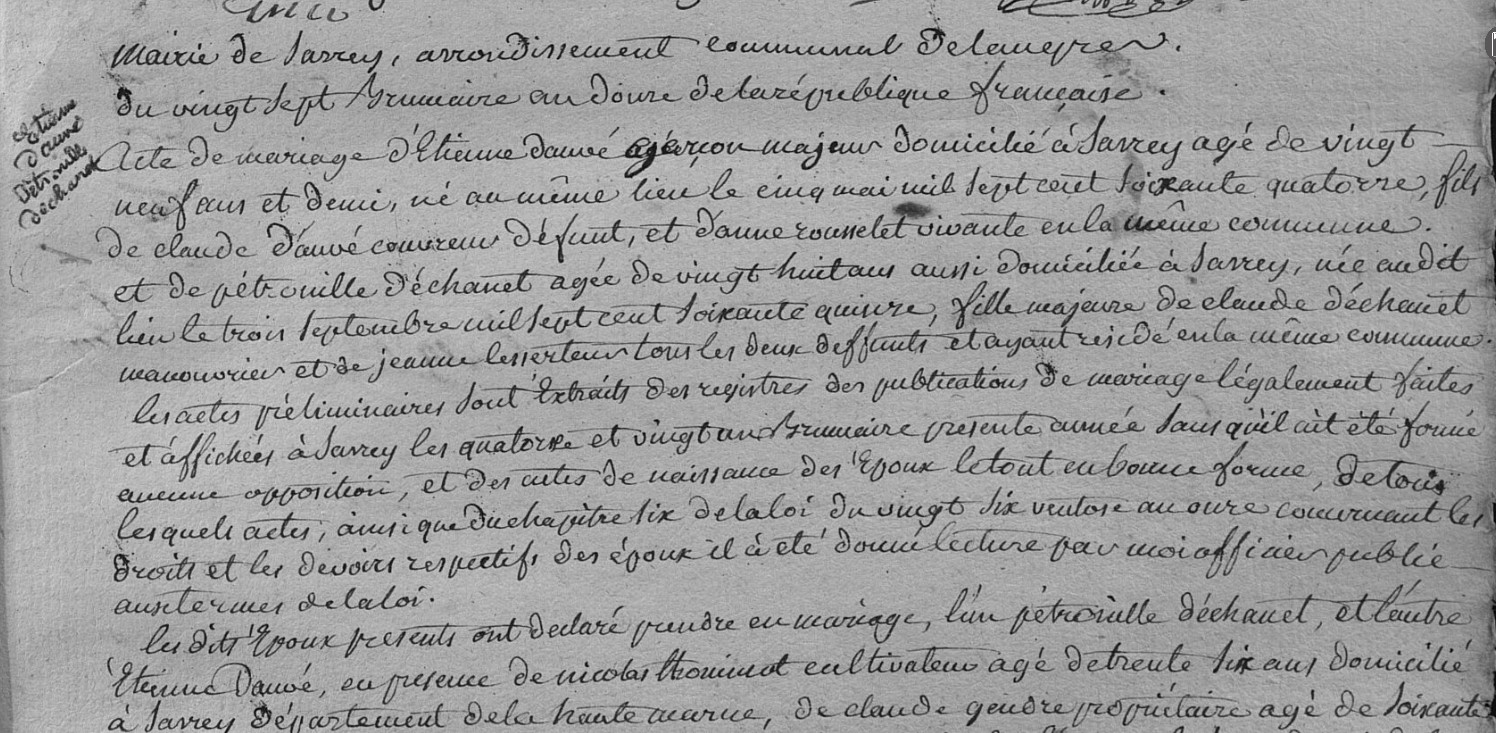 mairie de Sarrey, arrondissement communal de langres.
du vingt sept Brumaire an douze de la république française.
Etienne
Dauvé
Pétronille
déchanet
Acte de mariage d'Etienne dauvé garçon majeur domicilié à Sarrey agé de vingt
neuf ans et demi, né au même lieu le cinq mai mil sept cent soixante quatorze, fils
de claude Dauvé couvreur défunt, et d'anne rousselet vivante en la même commune.
et de pétronille déchanet agée de vingt huit ans aussi domiciliée à Sarrey, née audit
lieu le trois septembre mil sept cent soixante quinze, fille majeure de claude déchanet
manouvrier et de jeanne lesserteur tous les deux deffunts et ayant residé en la même commune.
les actes préliminaires sont Extraits des registres des publications de mariage légalement faites
et affichées à Sarrey les quatorze et vingt un Brumaire presente année sans qu'il ait été formé
aucune opposition, et des actes de naissance des Epoux le tout en bonne forme, de tous
lesquels actes, ainsi que du chapitre six de la loi du vingt six ventose an onze concernant les
droits et les devoirs respectifs des époux il à été donné lecture par moi officier public
aux termes de la loi.
les dits Epoux presents ont declaré prendre en mariage, l'un pétronille déchanet, et l'autre
Etienne Dauvé, en presence de nicolas cultivateur agé de trente six ans domicilié
à Sarrey département de la haute marne, de claude gendre propriétaire agé de soixante